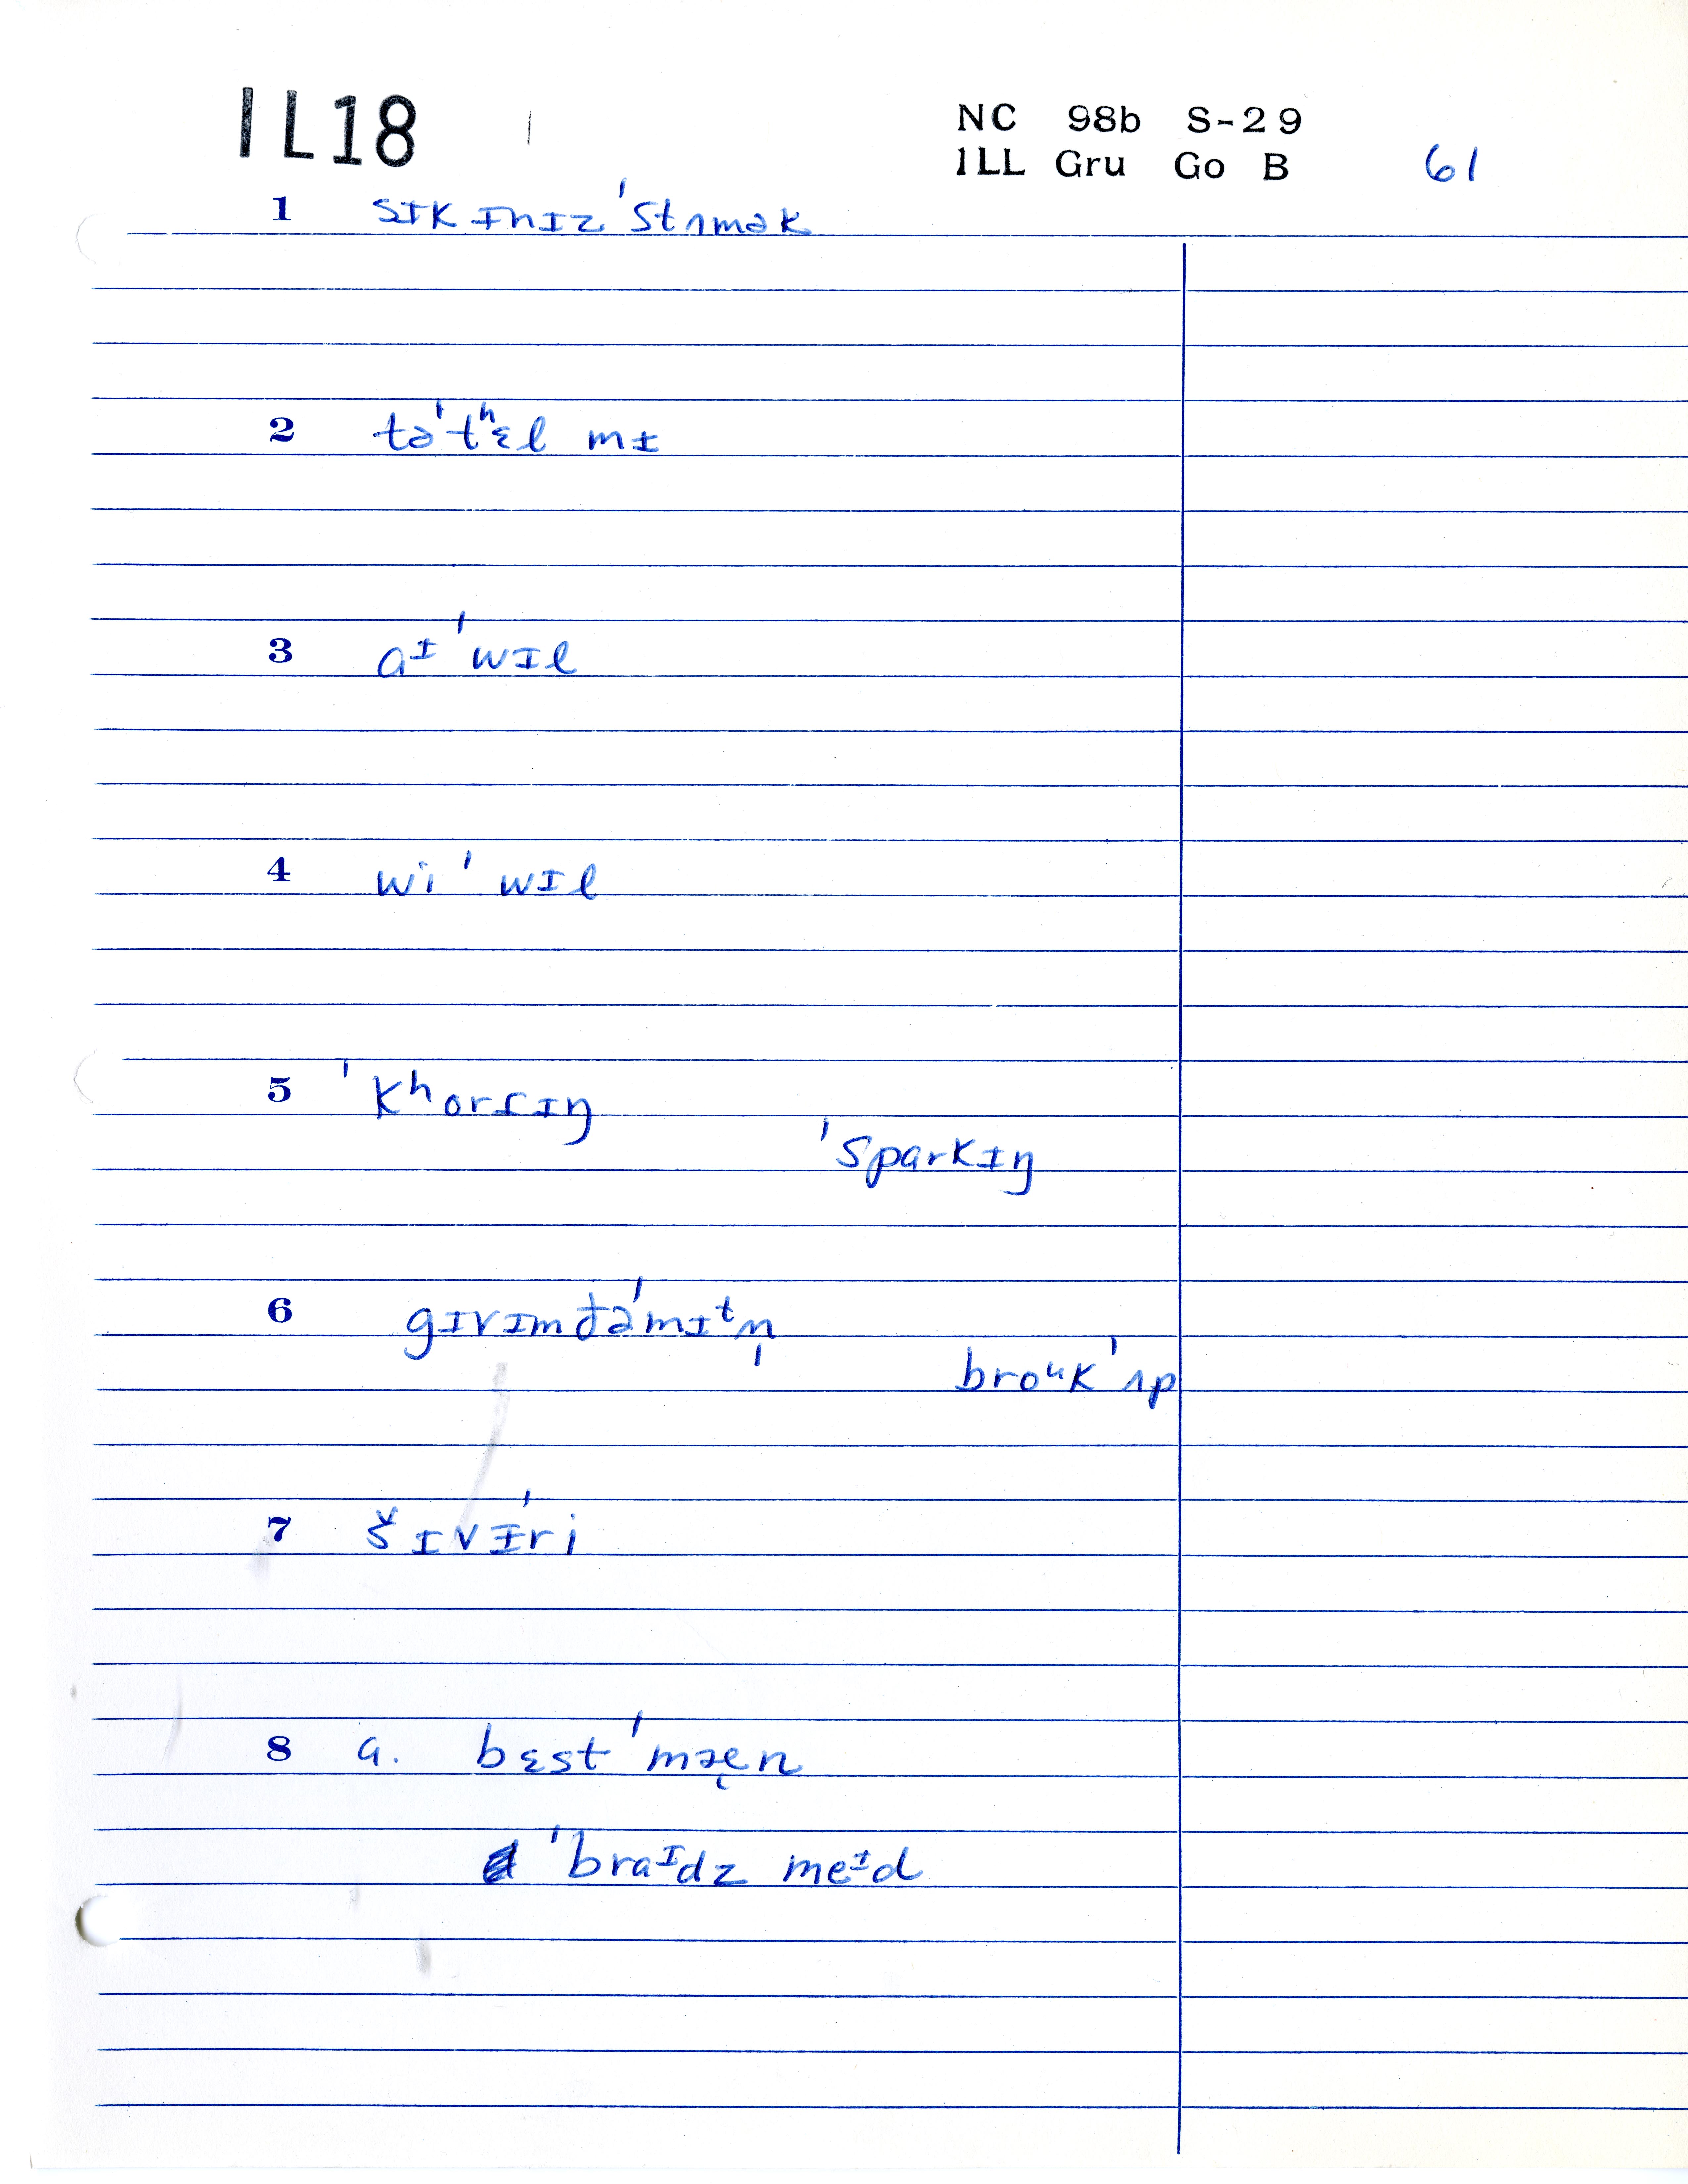 IL18
NC 98b S-29
ILL Gru Go B 61
1 sɪk ɨnɪz ˈstʌmək
2 təˈtʰɛl mɨ
3 aᶧ ˈwɪl
4 wi ˈwɪl
5 ˈkʰorɾɨŋ
ˈsparkɨŋ
6 gɪvɪmđəˈmɪᵗn̩
broᵘk ˈʌp
7 šɪvɨˈri
8 a. bɛst ˈmæ̨n
ˈbraᶦdz meᶧd